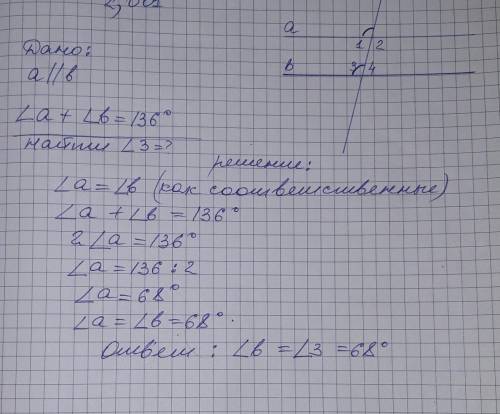 a
1 2
Дано:
a||b
в
3 4
∠a + ∠b = 136°
найти ∠3 = ?
решение:
∠a = ∠b (как соответственные)
∠a + ∠b = 136°
2∠a = 136°
∠a = 136 : 2
∠a = 68°
∠a = ∠b = 68°.
Ответ : ∠b = ∠3 = 68°